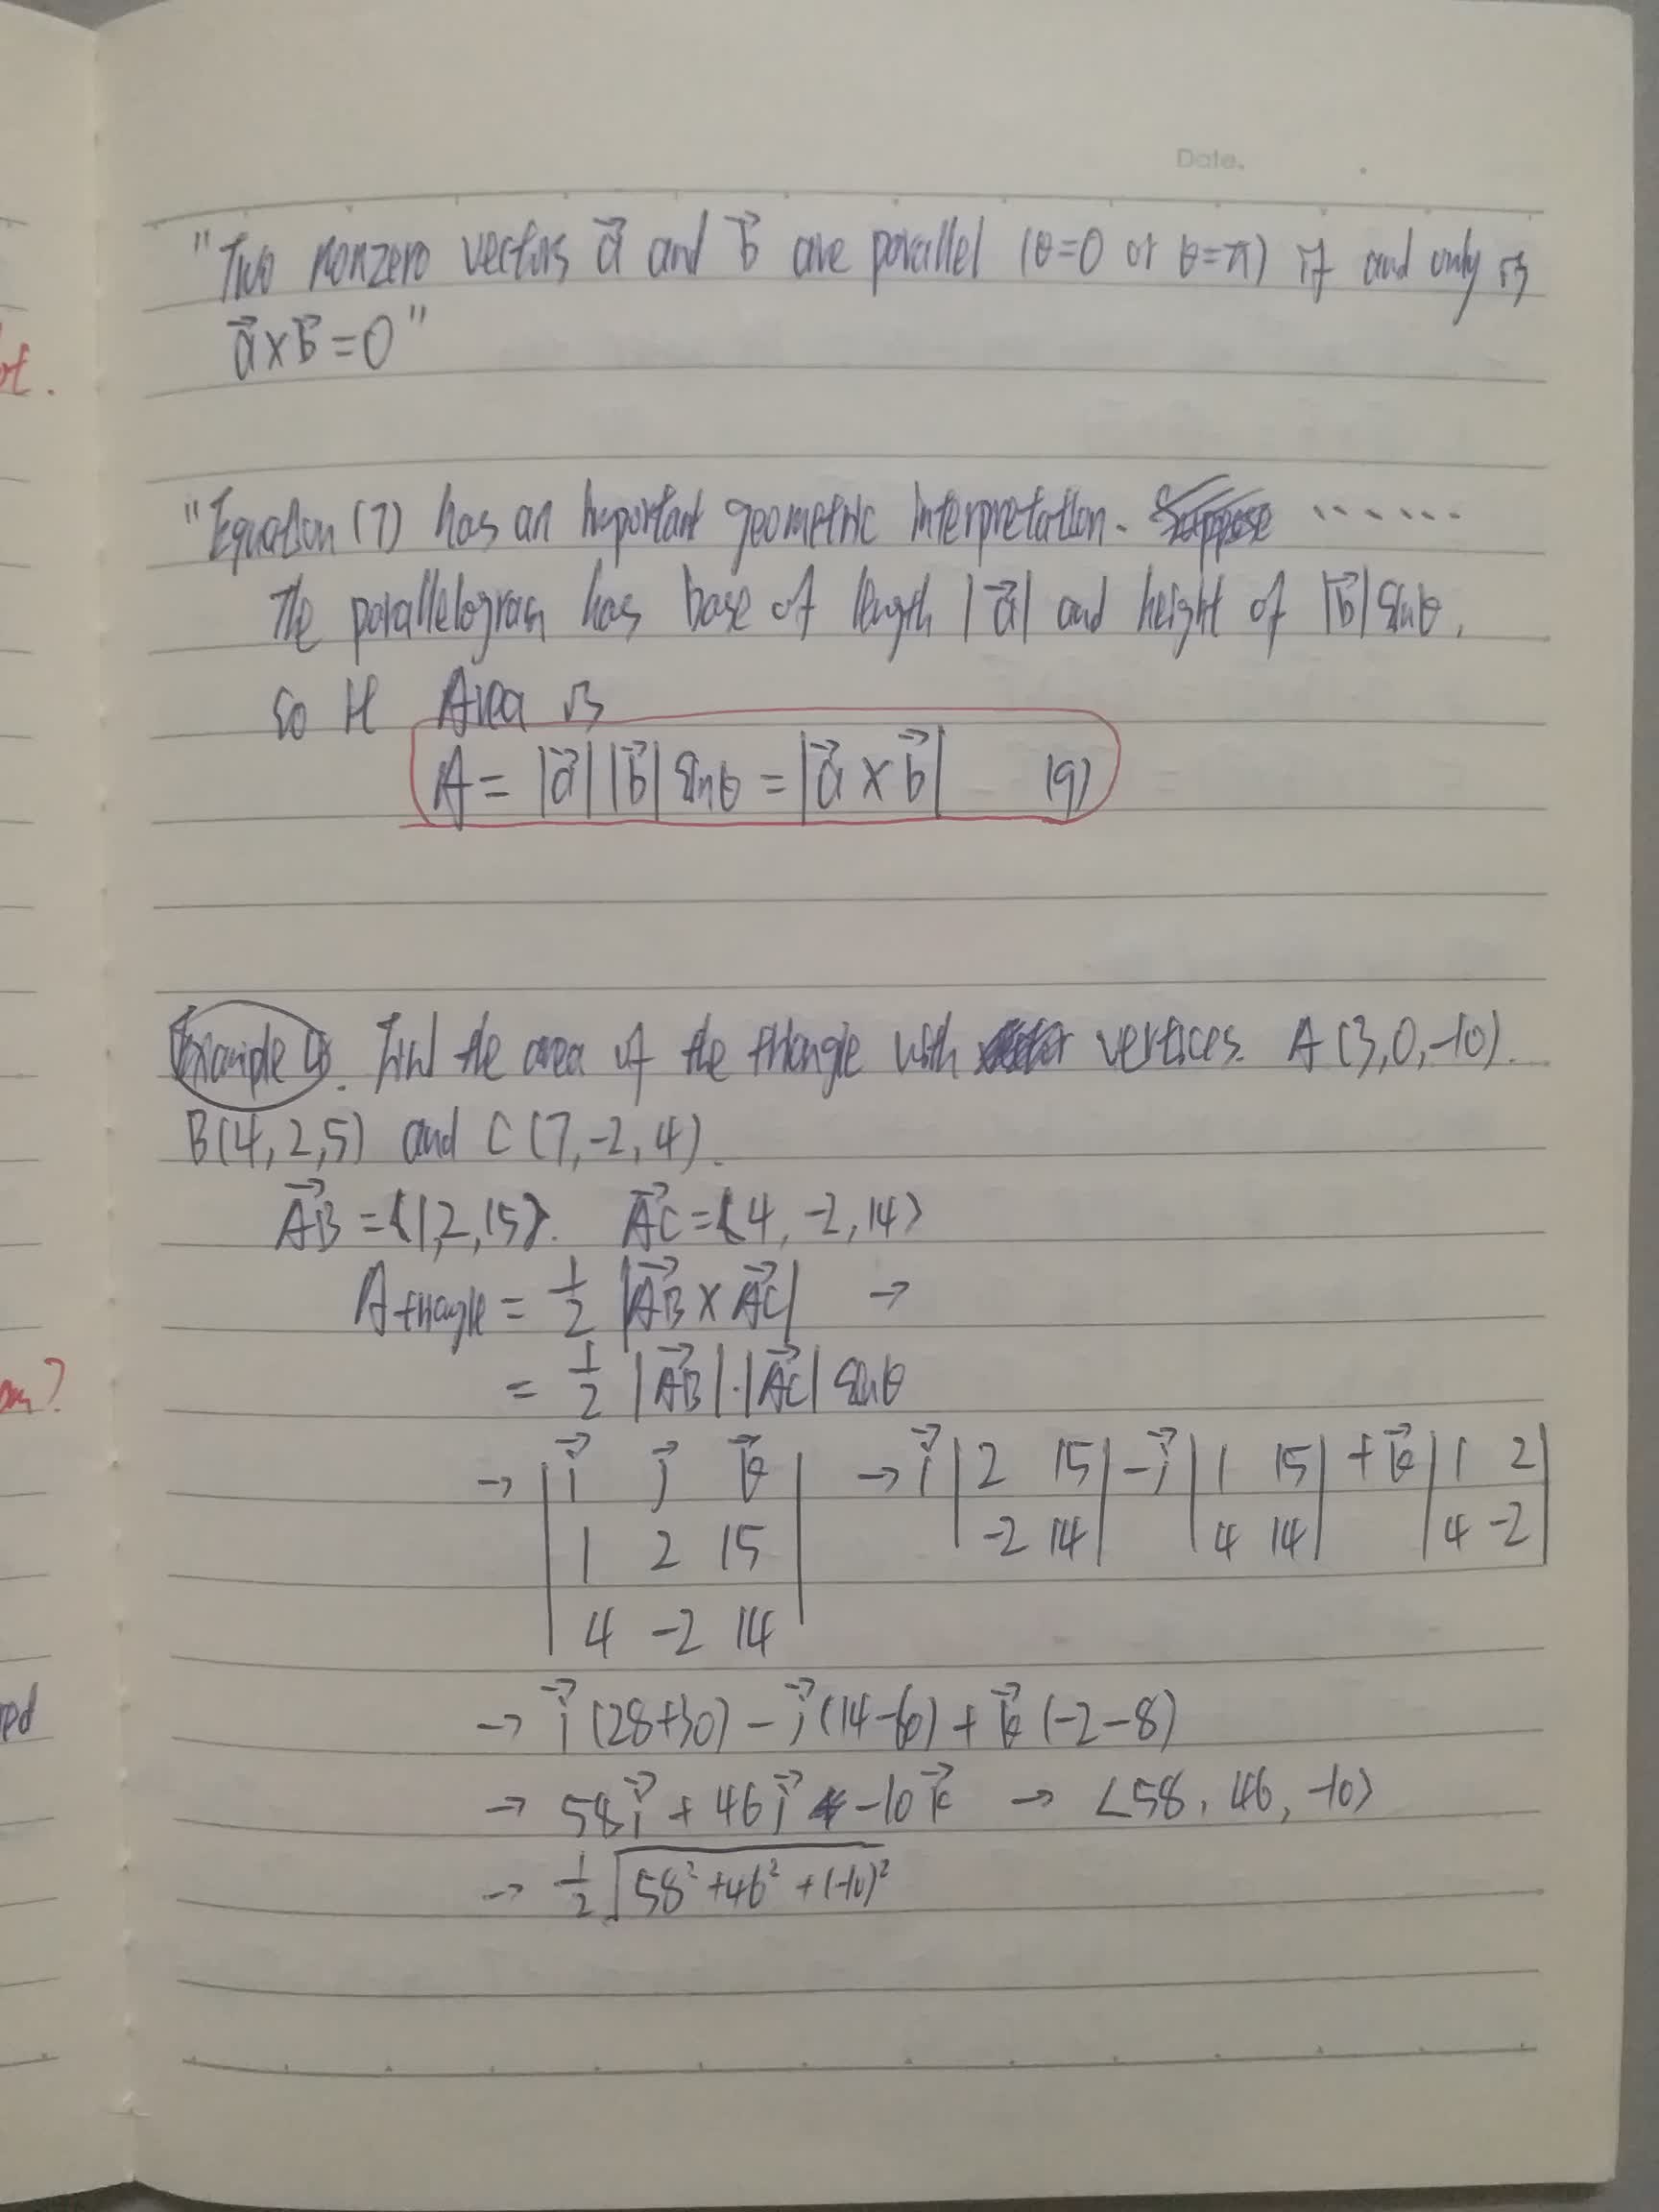 Date.
"Two nonzero vectors a⃗ and b⃗ are parallel (θ=0 or θ=π) if and only if
a⃗×b⃗=0"
"Equation (7) has an important geometric interpretation. Suppose ......
The parallelogram has base of length |a⃗| and height of |b⃗|sinθ.
so it Area is
A = |a⃗||b⃗| sinθ = |a⃗ × b⃗| (9)
ot.
Example. Find the area of the triangle with vertices. A(3,0,-10).
B(4,2,5) and C(7,-2,4).
AB⃗ = <1,2,15>. AC⃗ = <4,-2,14>
A triangle = 1/2 |AB⃗ × AC⃗| →
= 1/2 |AB⃗|·|AC⃗| sinθ
om?
→ | i⃗ j⃗ k⃗ | → i⃗ | 2 15 | - j⃗ | 1 15 | + k⃗ | 1 2 |
| 1 2 15 | | -2 14 | | 4 14 | | 4 -2 |
| 4 -2 14 |
→ i⃗(28+30) - j⃗(14-60) + k⃗(-2-8)
→ 58i⃗ + 46j⃗ -10k⃗ → <58, 46, -10>
→ 1/2 √58²+46²+(-10)²